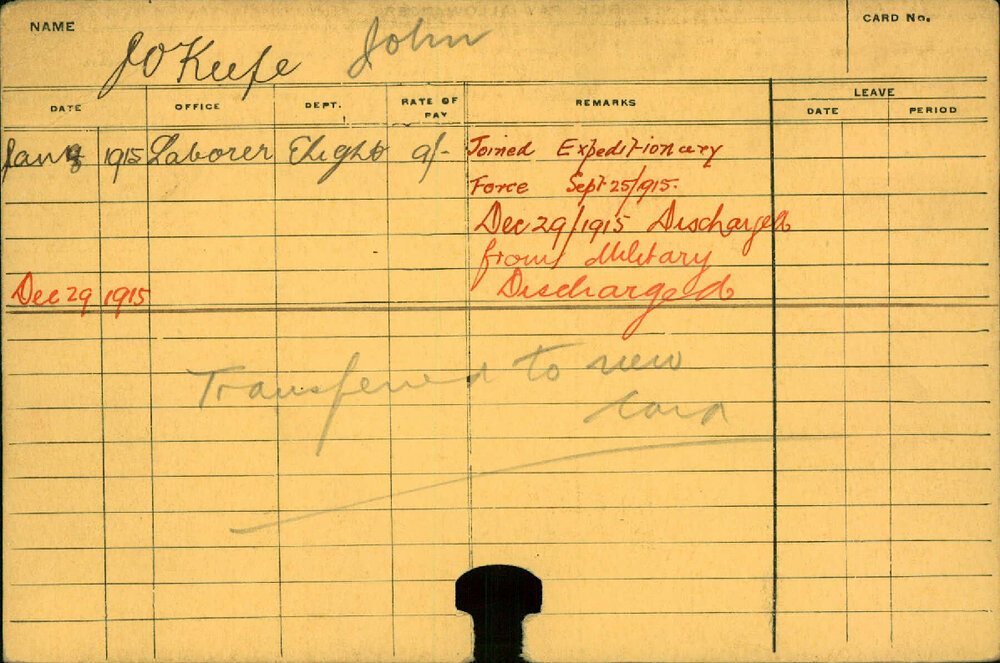 NAME
CARD No.
J O'Keefe John
LEAVE
DATE OFFICE DEPT. RATE OF PAY REMARKS DATE PERIOD
Jan 1915 Laborer 9/- Joined Expeditionary
Force Sept 25/1915.
Dec 29/1915 Discharged
from Military
Dec 29 1915 Discharged
Transferred to new
Card